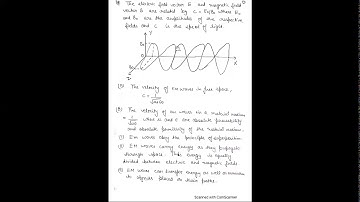 The electric field vector E and magnetic field
vector B are related by C = E₀/B₀ where E₀
and B₀ are the amplitudes of the respective
fields and C is the speed of light.
Y
E₀
X
B₀
Z
The velocity of EM waves in free space,
C = 1/√μ₀ε₀
The velocity of em waves in a material medium
= 1/√με where μ and ε are absolute permeability
and absolute permittivity of the material medium.
EM waves obey the principle of superposition.
EM waves carry energy as they propagate
through space. This energy is equally
divided between electric and magnetic fields
EM waves can transfer energy as well as momentum
to objects placed on their paths.
Scanned with CamScanner